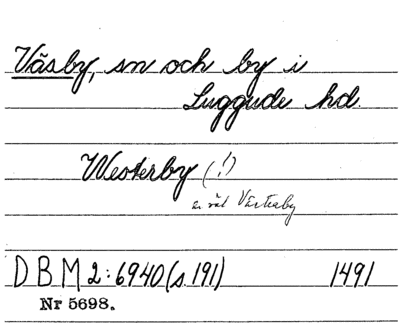 Väsby, sn och by i
Luggude hd
Westerby (!)
är väl Västraby
DBM 2:6940 (s. 191) 1491
Nr 5698.